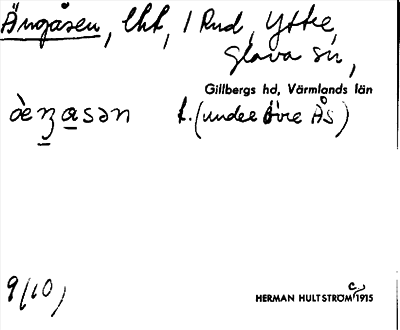 Ängåsen, lht, 1 Rud, Yttre,
Glava sn,
Gillbergs hd, Värmlands län
t. (under Övre Ås)
9/10)
HERMAN HULTSTRÖM 1915